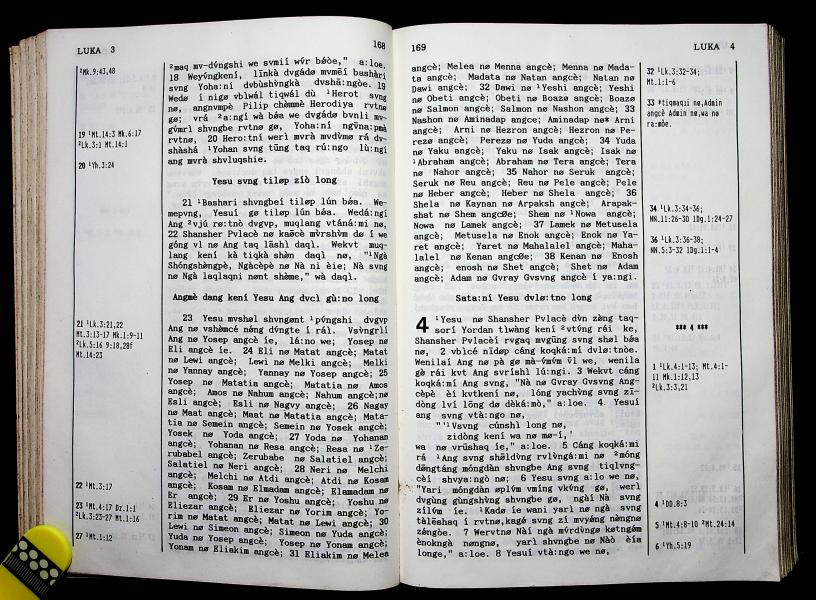 LUKA 3
168
²Mk.9:43,48
19 ¹Mt.14:3 Mk.6:17
²Lk.3:1 Mt.14:1
20 ¹Yh.3:24
21 ¹Lk.3:21,22
Mt.3:13-17 Mk.1:9-11
²Lk.5:16 9:18,28f
Mt.14:23
22 ¹Mt.3:17
23 ¹Mt.4:17 Dr.1:1
²Lk.3:23-27 Mt.1:16
27 ¹Mt.1:12
²maq mv-dv́ngshi we svmií wv́r bǿøe," a:loe.
18 Weyv́ngkení, līnkà dvgádø mvmēí bashàri
svng Yoha:ní dvbùshv̀ngkà dvshā:ngòe. 19
Wedø í nigø vblwál tiqwál dù ¹Herot svng
nø, angnvmpè Pilip chèmmè Herodiya rvtnø
gø; vrá ²a:ngí wà bǿa we dvgádø bvnlì mv-
gv́mrì shvngbe rvtnø gø, Yoha:ní ngv̄na:pmà
rvtnø, 20 Hero:tní werì mvrà mvdv̀mø rá dv-
shàshá ¹Yohan svng tūng taq rú:ngo lù:ngí
ang mvrà shvluqshìe.
Yesu svng tiløp zíò long
21 ¹Bashari shvngbeí tiløp lún bǿa. We-
mepvng, Yesuí gø tiløp lún bǿa. Wedá:ngí
Ang ²vjú rø:tnò dvgvp, muqlang vtáná:mì nø,
22 Shansher Pvlacè nø kaēcè mv̀rshv̀m dø í we
góng vl nø Ang taq lāshì daqì. Wekvt muq-
lang kení kà tiqkà shàn daqì nø, "¹Ngà
Shóngshèngpè, Ngàcèpè nø Nà nì èìe; Nà svng
nø Ngà laqlaqnì nønt shème," wà daqì.
Angmè dang kení Yesu Ang dvcl̀ gù:no long
23 Yesu mvshøl shvngømt ¹pv́ngshì dvgvp
Ang nø vshèmcé nèng dv́ngte í rál. Vsv̀ngrlì
Ang nø Yosep angcè íe, lá:no we; Yosep nø
Eli angcè íe. 24 Eli nø Matat angcè; Matat
nø Lewi angcè; Lewi nø Melki angcè; Melki
nø Yannay angcè; Yannay nø Yosep angcè; 25
Yosep nø Matatia angcè; Matatia nø Amos
angcè; Amos nø Nahum angcè; Nahum angcè;nø
Esli angcè; Esli nø Nagvy angcè; 26 Nagay
nø Maat angcè; Maat nø Matatia angcè; Mata-
tia nø Semein angcè; Semein nø Yosek angcè;
Yosek nø Yoda angcè; 27 Yoda nø Yohanan
angcè; Yohanan nø Resa angcè; Resa nø ¹Ze-
rubabel angcè; Zerubabe nø Salatiel angcè;
Salatiel nø Neri angcè; 28 Neri nø Melchi
angcè; Melchi nø Atdi angcè; Atdi nø Kosam
angcè; Kosam nø Elmadam angcè; Elamadam nø
Er angcè; 29 Er nø Yoshu angcè; Yoshu nø
Eliezar angcè; Eliezar nø Yorim angcè; Yo-
rim nø Matat angcè; Matat nø Lewi angcè; 30
Lewi nø Simeon angcè; Simeon nø Yuda angcè;
Yuda nø Yosep angcè; Yosep nø Yonam angcè;
Yonam nø Eliakim angcè; 31 Eliakim nø Melea
169
LUKA 4
angcè; Melea nø Menna angcè; Menna nø Mada-
ta angcè; Madata nø Natan angcè; Natan nø
Dawi angcè; 32 Dawi nø ¹Yeshi angcè; Yeshi
nø Obeti angcè; Obeti nø Boaza angcè; Boaza
nø Salmon angcè; Salmon nø Nashon angcè; 33
Nashon nø Aminadap angce; Aminadap nø* Arni
angcè; Arni nø Hezron angcè; Hezron nø Pe-
rezø angcè; Perezø nø Yuda angcè; 34 Yuda
nø Yaku angcè; Yaku nø Isak angcè; Isak nø
¹Abraham angcè; Abraham nø Tera angcè; Tera
nø Nahor angcè; 35 Nahor nø Seruk angcè;
Seruk nø Reu angcè; Reu nø Pele angcè; Pele
nø Heber angcè; Heber nø Shela angcè; 36
Shela nø Kaynan angcè; Kaynan nø Arpaksh angcè; Arapak-
shat nø Shem angcøe; Shem nø ¹Nowa angcè;
Nowa nø Lamek angcè; 37 Lamek nø Metusela
angcè; Metusela nø Enok angcè; Enok nø Ya-
ret angcè; Yaret nø Mahalalel angcè; Maha-
lalel nø Kenan angcøe; 38 Kenan nø Enosh
angcè; enosh nø Shet angcè; Shet nø Adam
angcè; Adam nø Gvray Gvsvng angcè í ya:ngì.
Sata:ní Yesu dvlø:tno long
4 ¹Yesu nø Shansher Pvlacè dv̀n zèng taq-
sorí Yordan tìwàng kení ²vtv́ng rái ke,
Shansher Pvlacèí rvgaq mvgūng svng shøl bǿa
nø, 2 vblcé nīdøp cáng koqká:mí dvlø:tnòe.
3 Wekvt cáng
koqká:mí Ang svng, "Nà nø Gvray Gvsvng Ang-
cèpè èì kvtkení nø, lóng yachv̀ng svng zī-
dòng lvì lōng dø dèká:mò," a:loe. 4 Yesuí
ang svng vtà:ngo nø,
"'¹Vsvng cúnshì long nø,
zidòng kení wa nø mø-í,'
wa nø vrūshaq íe," a:loe. 5 Cáng koqká:mí
32 ¹Lk.3:32-34;
Mt.1:1-6
33 *tiqmaqií nø,Admin
angcè Admin nø,wa nø
ra:mòe.
34 ¹Lk.3:34-36;
NN.11:26-30 1Dg.1:24-27
36 ¹Lk.3:36-38;
NN.5:3-32 1Dg.1:1-4
*** 4 ***
1 ¹Lk.4:1-13; Mt.4:1-
11 Mk.1:12,13
²Lk.3:3,21
4 ¹DD.8:3
5 ¹Mt.4:8-10 ²Mt.24:14
6 ¹Yh.5:19